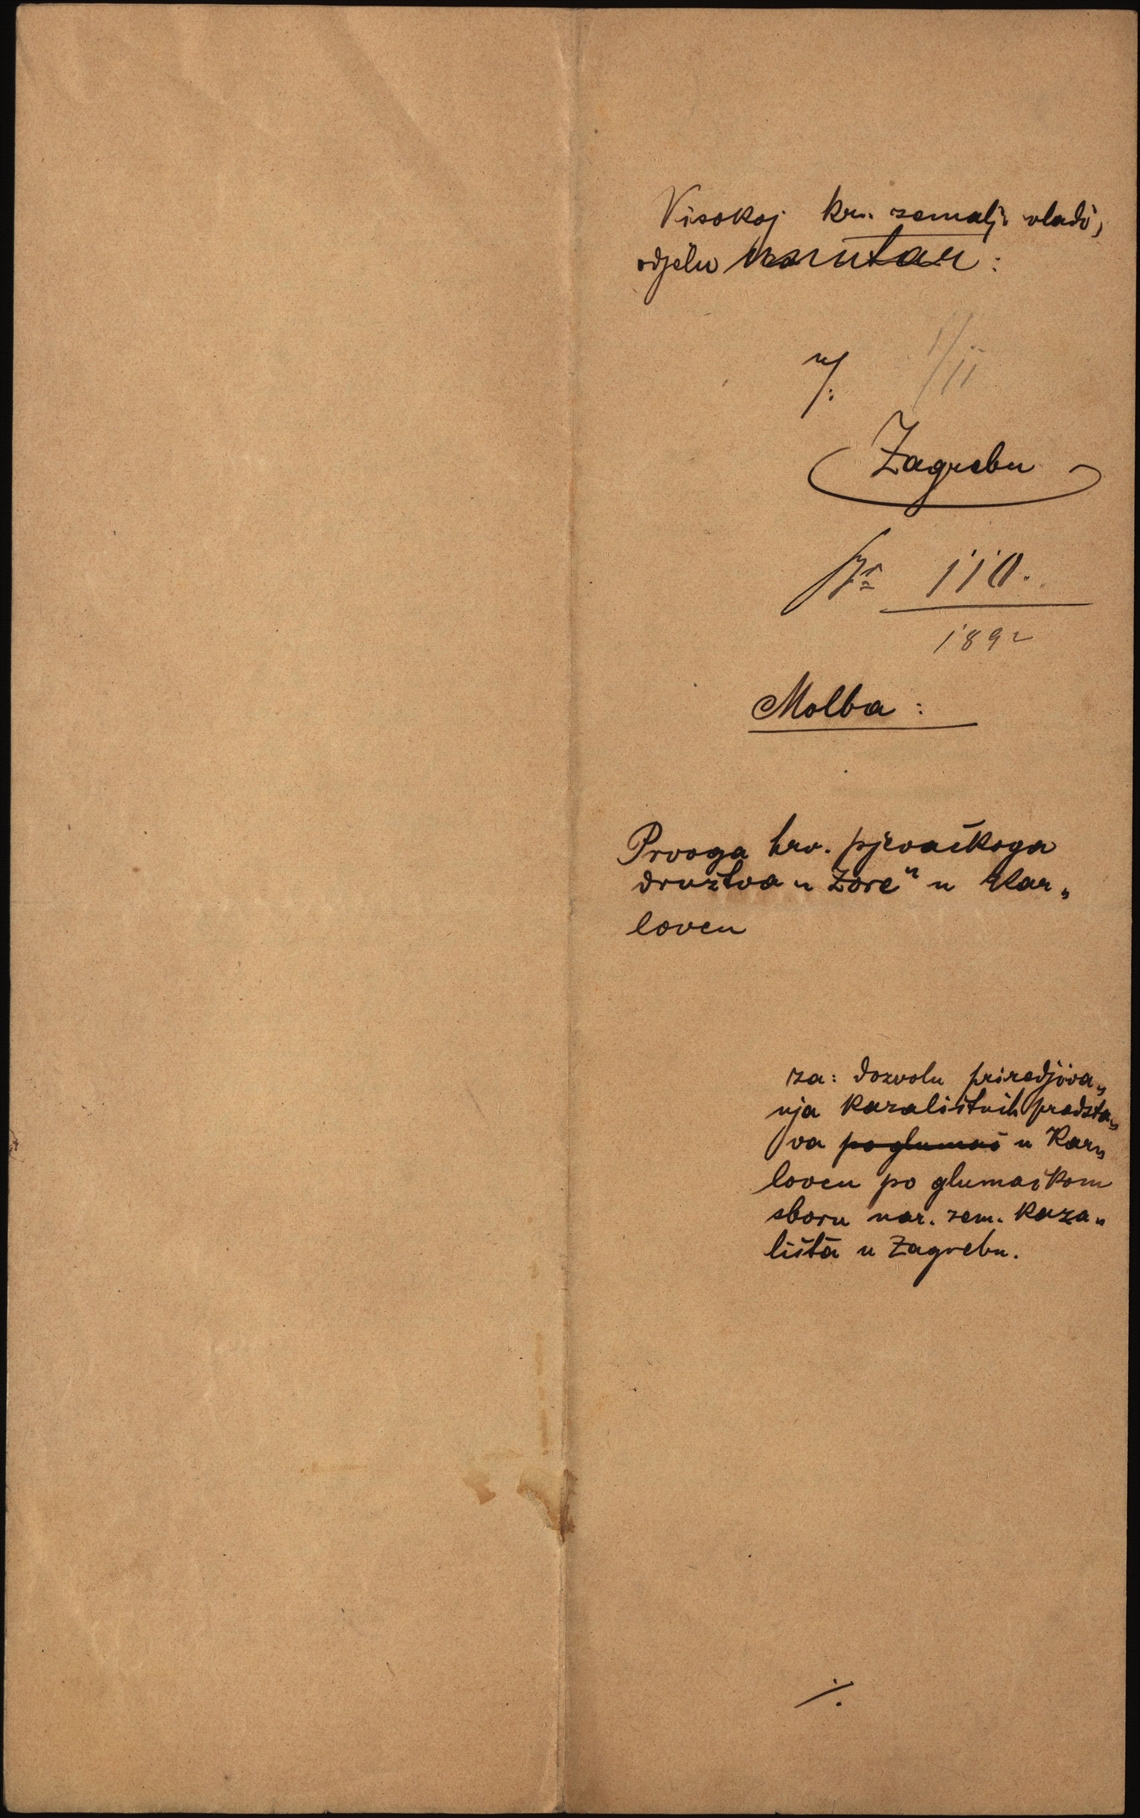 Visokoj kr. zemalj. vladi,
odjelu unutar :
u/:
1/II
Zagrebu
Pr 110.
1892
Molba :
Prvoga hrv. pjevačkoga
družtva „Zore“ u Kar„
lovcu
za: dozvolu priredjiva„
nja kazalištnih predsta„
va po glumač u Kar„
lovcu po glumačkom
sboru nar. zem. kaza„
lišta u Zagrebu.
./.